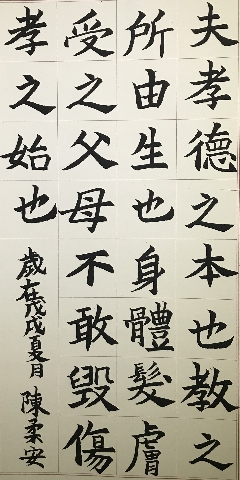 夫孝德之本也教之
所由生也身體髮膚
受之父母不敢毀傷
孝之始也
歲在戊戌夏日 陳柔安